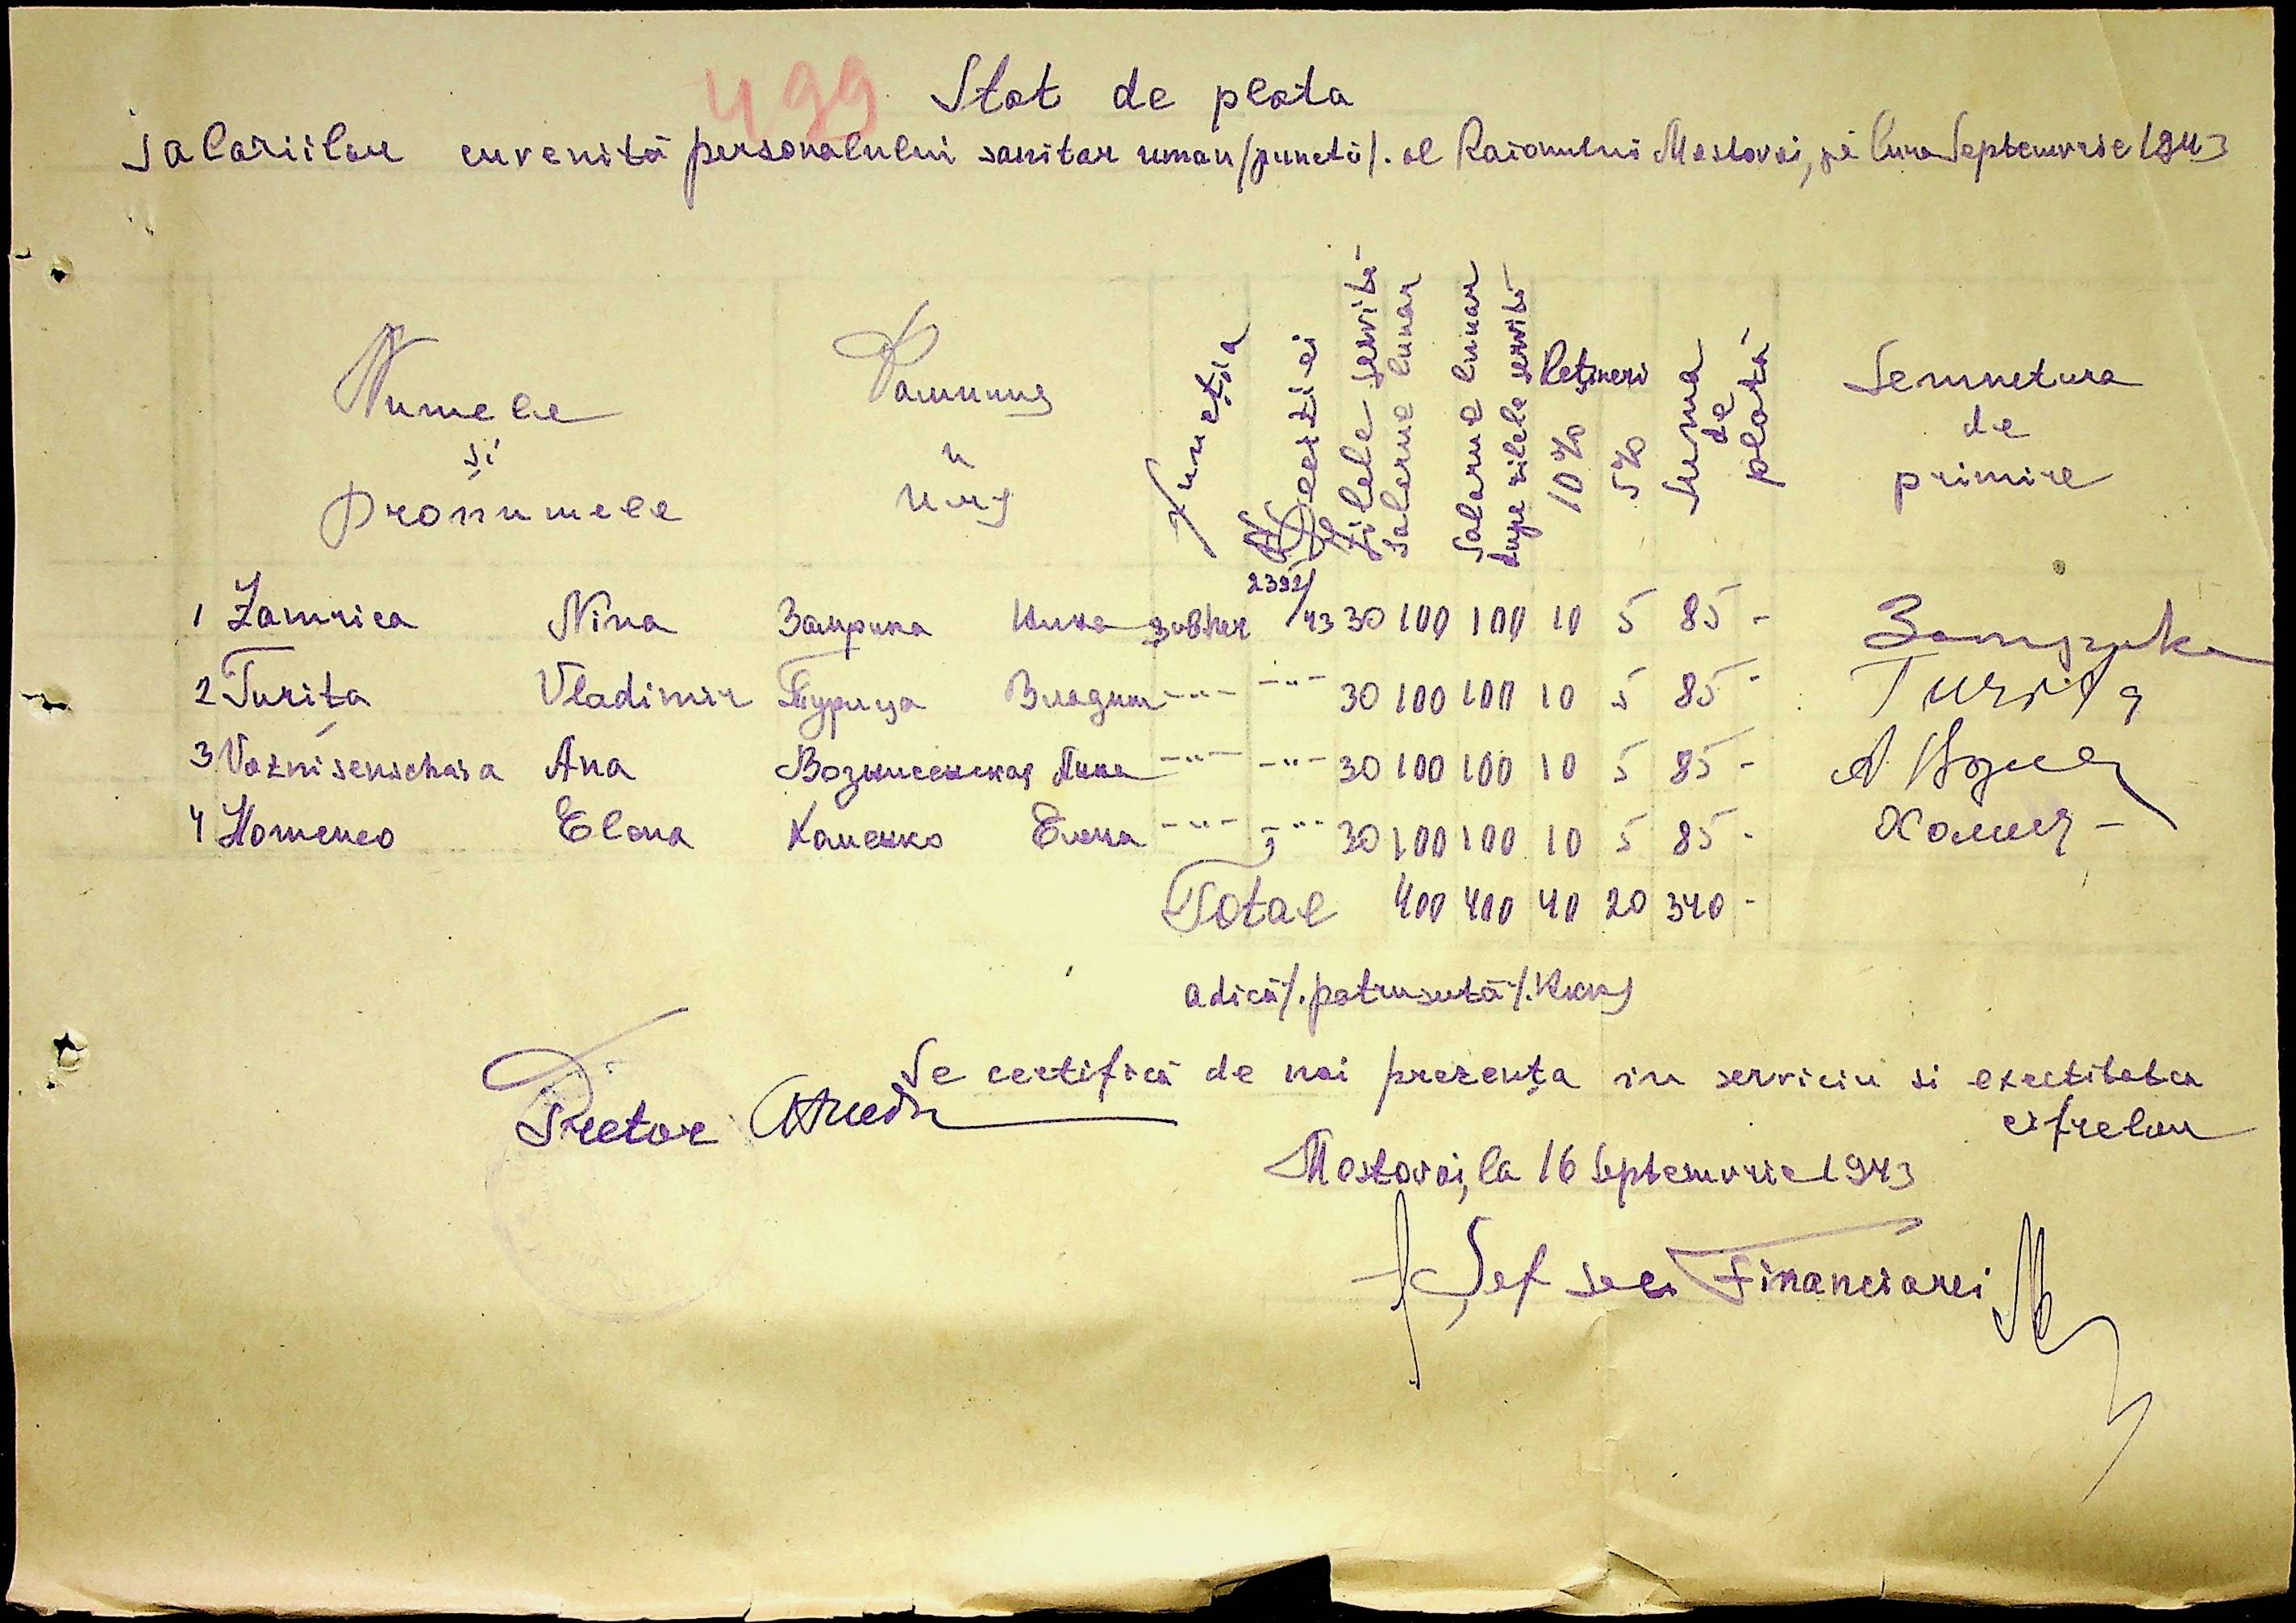 499
Stat de plata
Salariilor cuvenită personalului sanitar uman /punctă/. al Raionului Mostovoi, pe luna Septemvrie 1943
Numele
și
pronumele
Фамилия
и
имя
Funcția
№ Deciziei
Zilele servite
Salerul lunar
Salarul lunar
dupe zilele servite
Rețineri
10%
5%
Suma
de
plată
Semnetura
de
primire
1 Zamrica Nina Замрика Нина 2392/43 30 100 100 10 5 85 - Замрика
2 Turița Vladimir Турица Владим -"- -"- 30 100 100 10 5 85 - Turița
3 Voznisenschaia Ana Вознисенская Анна -"- -"- 30 100 100 10 5 85 -
4 Homenco Elena Хоменко Елена -"- -"- 30 100 100 10 5 85 -
Total 400 400 40 20 340 -
adică/. patrusută/.
Se certifică de noi prezența in serviciu si exactitatea
cifrelor
Pretor
Mostovoi, la 16 Septemvrie 1943
Șef sec. Financiarei